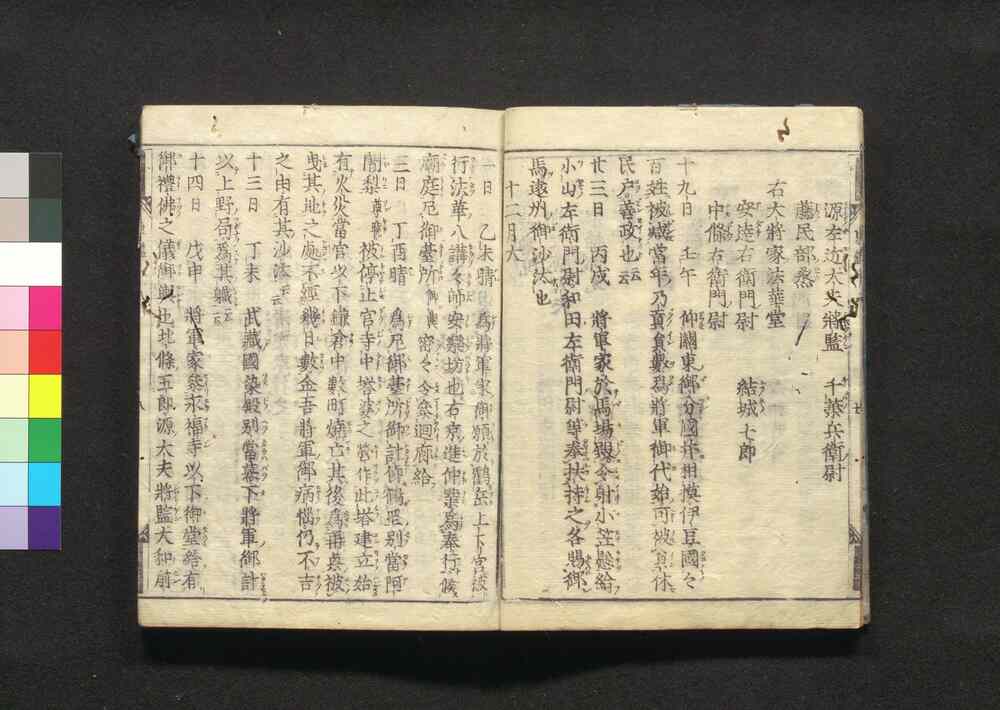 源左近大夫將監　千葉兵衞尉
藤民部丞
右大將家法華堂
安達右衞門尉　結城七郎
中條右衞門尉
十九日　壬午　仰關東御分國并相摸伊豆國々
百姓被
當年乃貢員數爲將軍御代始可被
休
民户善政也云云
廿三日　丙戌　將軍家於馬場殿令射小笠懸給
小山左衞門尉和田左衞門尉等奉扶持之各賜御
馬遠州御沙汰也
十二月大
一日　乙未晴　爲將軍家御願於鶴岳上下宮被
行法華八講々師安樂坊也右京進仲業爲奉行
三日　丁酉晴　爲尼御臺所御計鶴岳別當阿
闍梨
被停止宮寺中塔婆之營作此塔建立始
有火災當宮以下鎌倉中數町燒亡其後爲再
被
曳其地之處不經幾日數金吾將軍御病惱仍不吉
之由有其沙汰云云
十三日　丁未　武藏國染殿別當
下將軍御計
以上野局爲其職云云
十四日　戊申　將軍家參永福寺以下御堂給有
御禮佛之儀御輿也北條五郎源大夫將監大和前